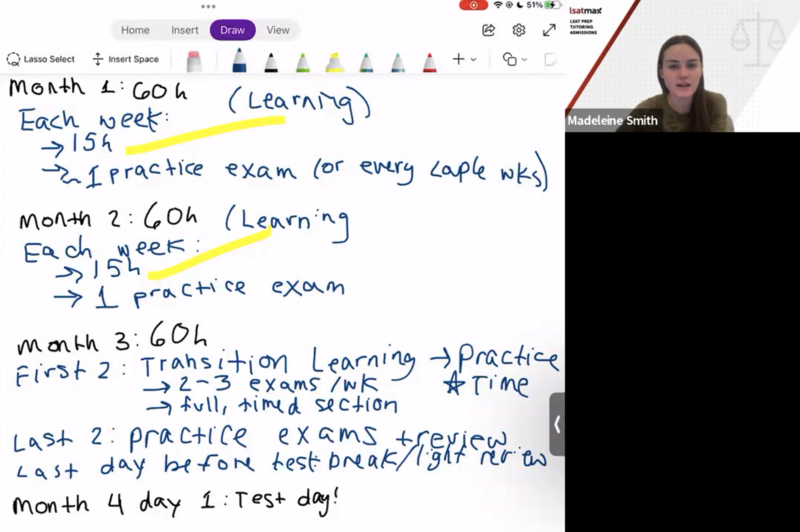 51%
Home Insert Draw View
Lasso Select Insert Space
Month 1: 60h (Learning)
Each week:
→ 15h
→ ~1 practice exam (or every caple wks)
Month 2: 60h (Learning
Each week:
→ 15h
→ 1 practice exam
Month 3: 60h
First 2: Transition Learning → Practice
→ 2-3 exams/wk ☆ Time
→ full, timed section
Last 2: practice exams + review
Last day before test: break/light review
Month 4 day 1: Test day!
lsatmax
LSAT PREP
TUTORING
ADMISSIONS
Madeleine Smith